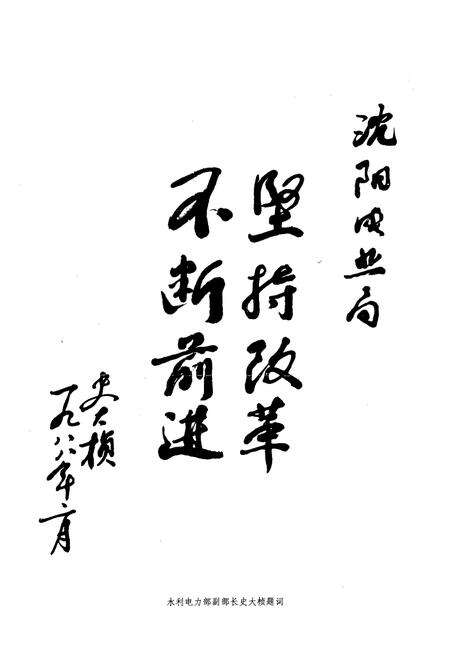 沈阳成业局
坚持改革
不断前进
史大桢
一九八八年二月
水利电力部副部长史大桢题词